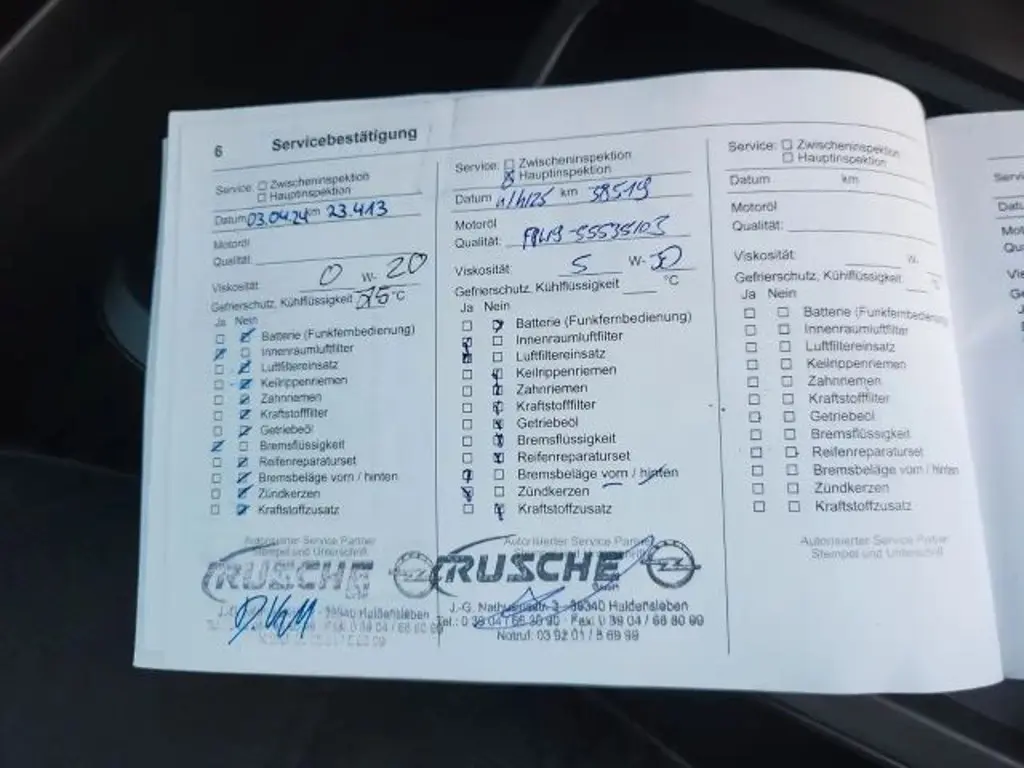 6 Servicebestätigung
Service: ☐ Zwischeninspektion
☐ Hauptinspektion
Datum 03.04.24 km 23.413
Motoröl
Qualität:
Viskosität 0 W- 20
Gefrierschutz, Kühlflüssigkeit °C
Ja Nein
☐ ☒ Batterie (Funkfernbedienung)
☒ ☐ Innenraumluftfilter
☐ ☒ Luftfiltereinsatz
☐ ☒ Keilrippenriemen
☐ ☒ Zahnriemen
☐ ☒ Kraftstofffilter
☐ ☒ Getriebeöl
☒ ☐ Bremsflüssigkeit
☐ ☒ Reifenreparaturset
☐ ☒ Bremsbeläge vorn / hinten
☐ ☒ Zündkerzen
☐ ☒ Kraftstoffzusatz
Autorisierter Service Partner
Stempel und Unterschrift
RUSCHE
GmbH
39340 Haldensleben
Service: ☐ Zwischeninspektion
☒ Hauptinspektion
Datum km 38519
Motoröl
Qualität:
Viskosität 5 W- 30
Gefrierschutz, Kühlflüssigkeit °C
Ja Nein
☐ ☒ Batterie (Funkfernbedienung)
☒ ☐ Innenraumluftfilter
☒ ☐ Luftfiltereinsatz
☐ ☒ Keilrippenriemen
☐ ☒ Zahnriemen
☐ ☒ Kraftstofffilter
☐ ☒ Getriebeöl
☐ ☒ Bremsflüssigkeit
☐ ☒ Reifenreparaturset
☒ ☐ Bremsbeläge vorn / hinten
☒ ☐ Zündkerzen
☐ ☒ Kraftstoffzusatz
Autorisierter Service Partner
RUSCHE
GmbH
39340 Haldensleben
Fax: 0 39 04 / 66 80 99
Notruf: 03 92 01 / 8 69 99
Service: ☐ Zwischeninspektion
☐ Hauptinspektion
Datum km
Motoröl
Qualität:
Viskosität: W-
Gefrierschutz, Kühlflüssigkeit °C
Ja Nein
☐ ☐ Batterie (Funkfernbedienung)
☐ ☐ Innenraumluftfilter
☐ ☐ Luftfiltereinsatz
☐ ☐ Keilrippenriemen
☐ ☐ Zahnriemen
☐ ☐ Kraftstofffilter
☐ ☐ Getriebeöl
☐ ☐ Bremsflüssigkeit
☐ ☐ Reifenreparaturset
☐ ☐ Bremsbeläge vorn / hinten
☐ ☐ Zündkerzen
☐ ☐ Kraftstoffzusatz
Autorisierter Service Partner
Stempel und Unterschrift